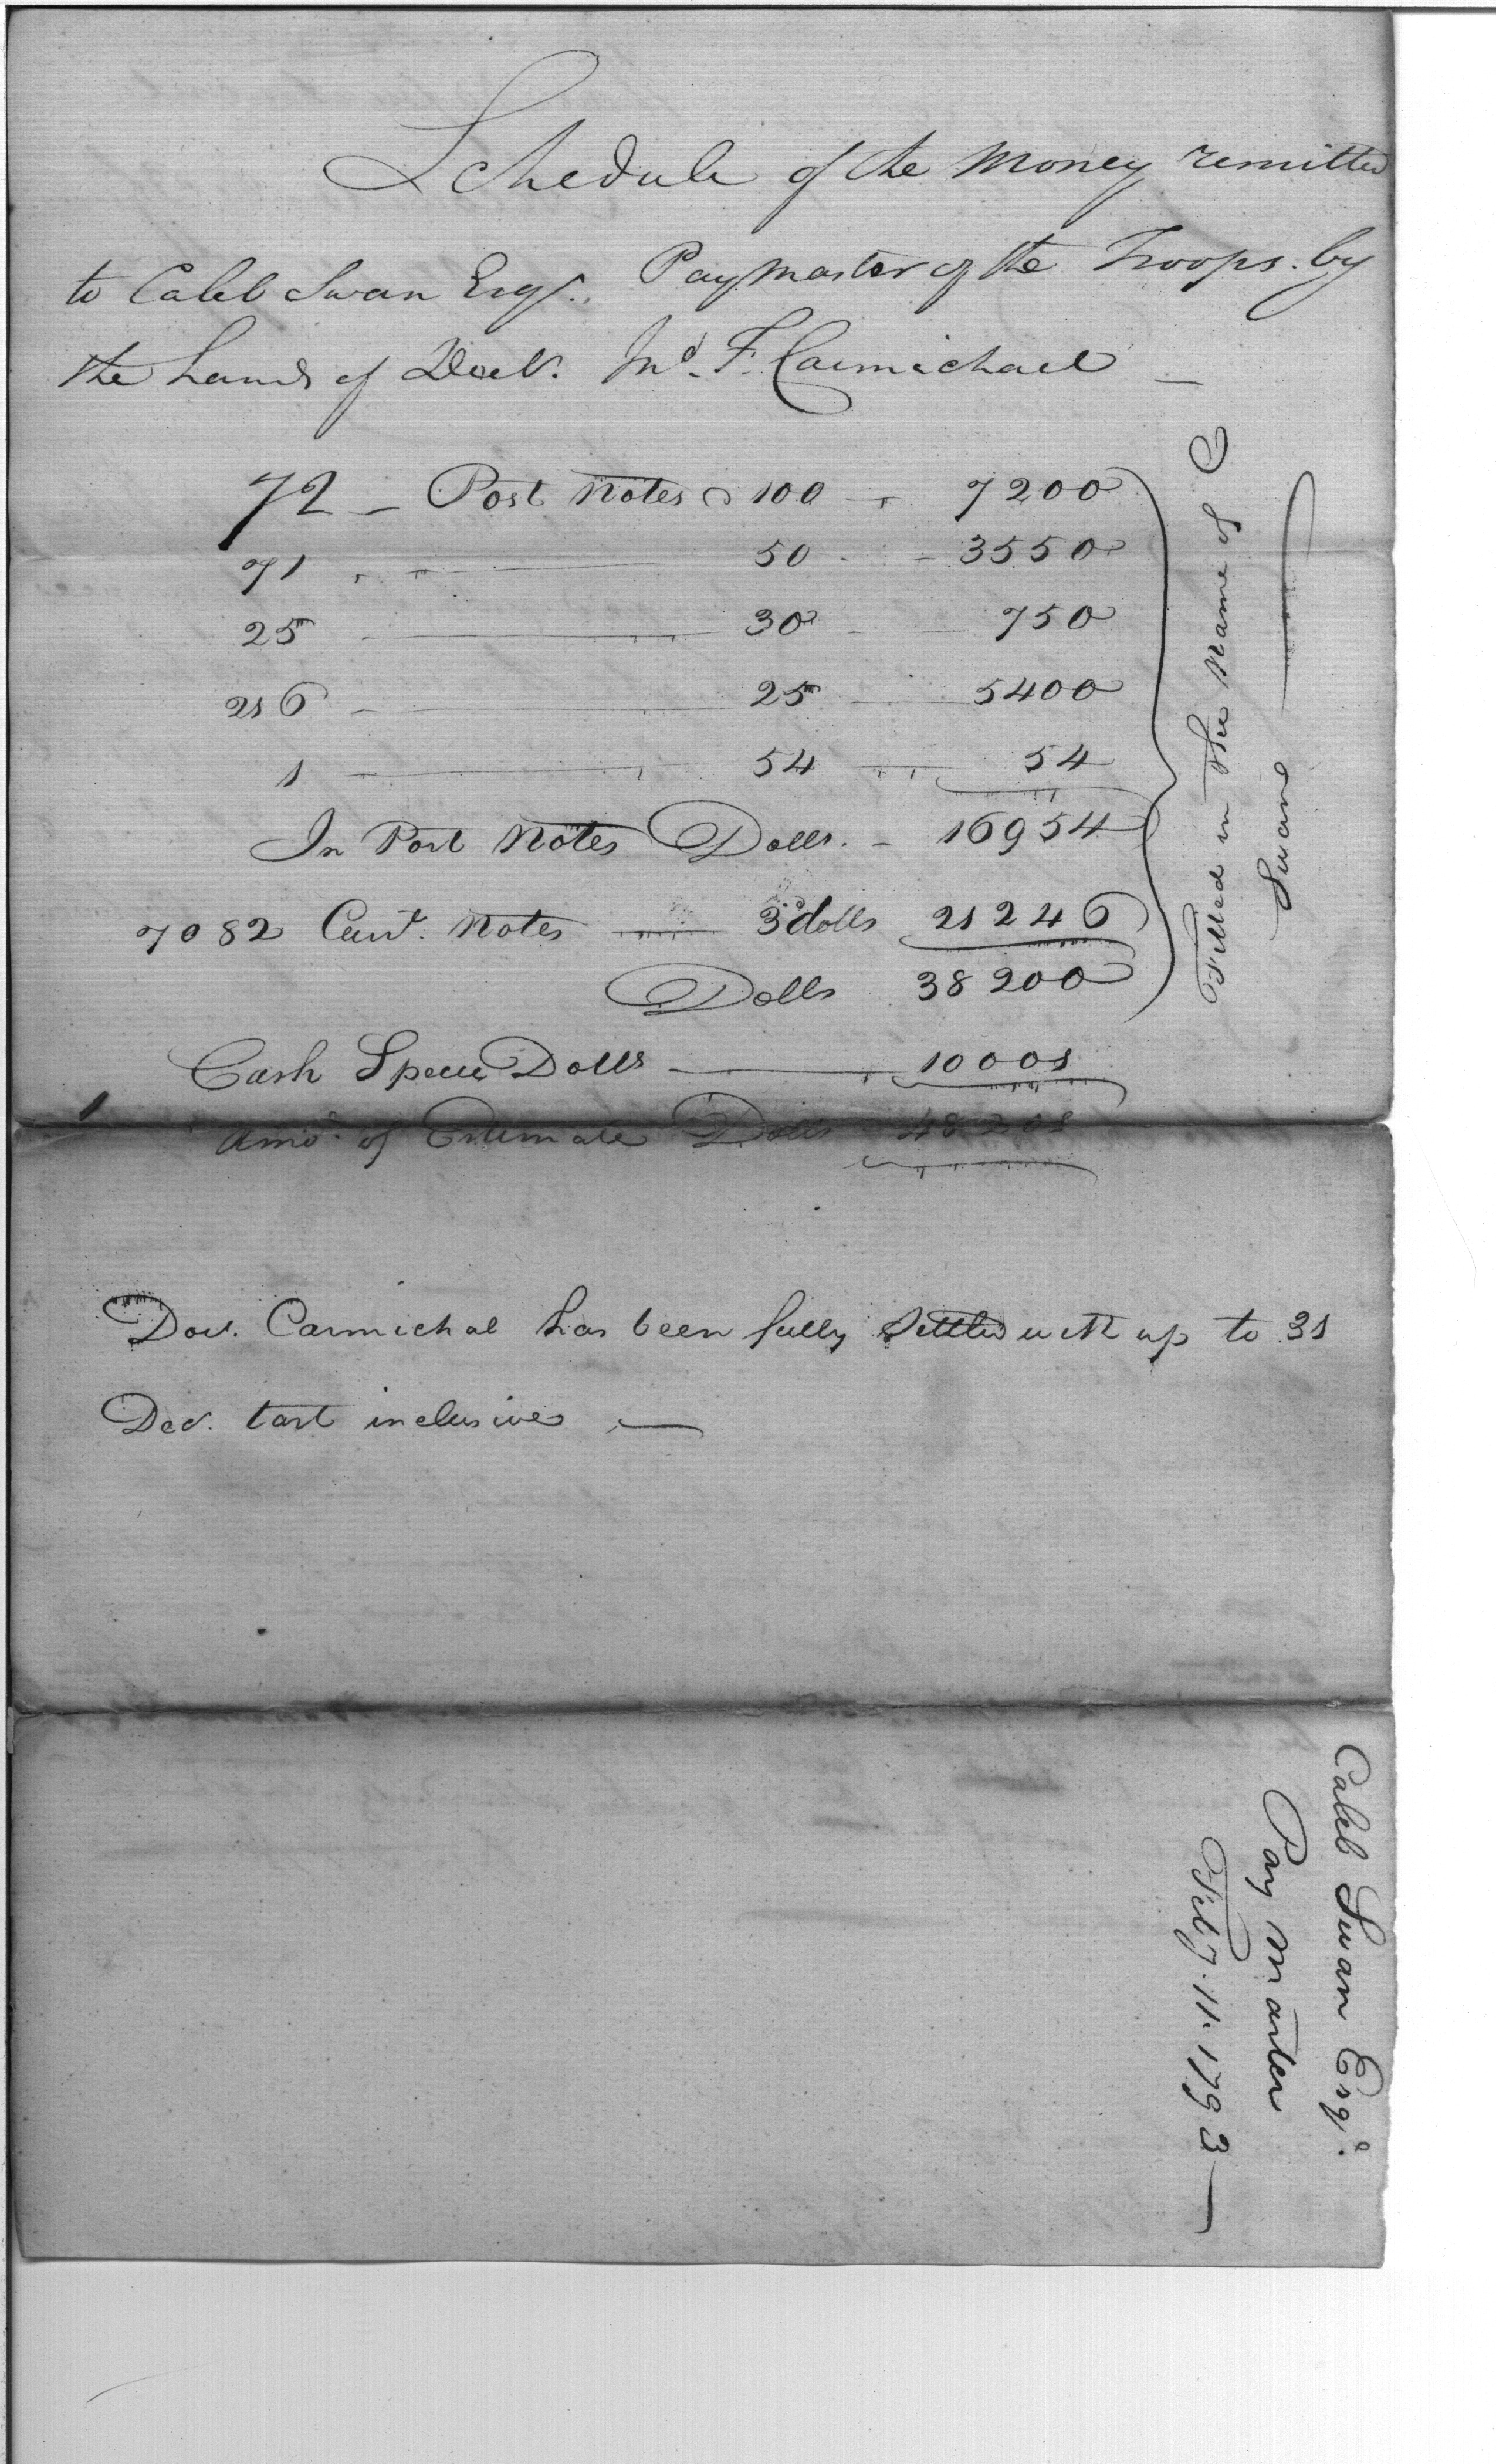 Schedule of the Money remitted
to Caleb Swan Esqr. Paymaster of the Troops. by
the hands of Doct. Jno. F. Carmichael —
72 — Post Notes @ 100 — 7200
71 — 50 — 3550
25 — 30 — 750
216 — 25 — 5400
1 — 54 — 54
In Post Notes Dolls. — 16954
7082 Curt. Notes — 3 dolls 21246
Dolls 38200
Cash Specie Dolls — 10001
Amot. of Estimate Dolls 48201
Filled in the Name of C
Swan
Doct. Carmichal has been fully settled with up to 31
Decr. last inclusive —
Caleb Swan Esqr.
Pay Master
Feby. 11. 1793 —